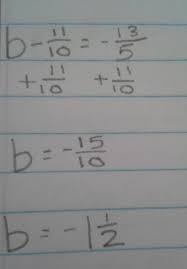 b - 11/10 = - 13/5
+ 11/10 + 11/10
b = - 15/10
b = - 1 1/2